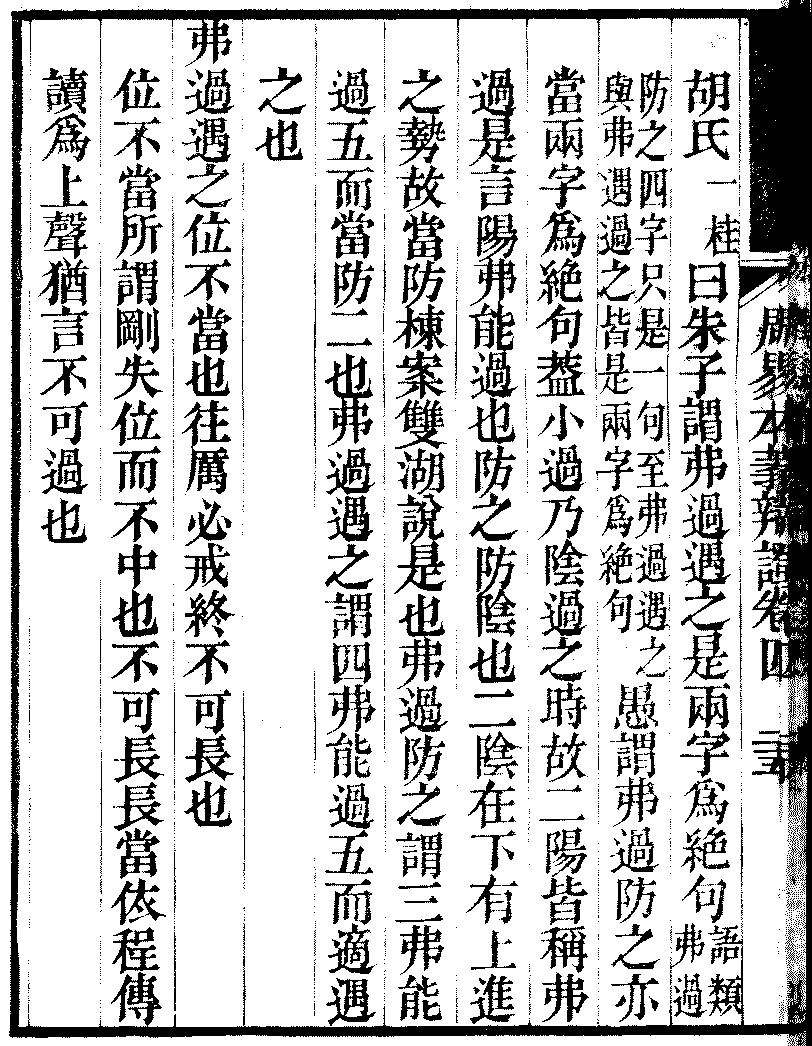 周易本義辨證卷四
胡氏一桂曰朱子謂弗過遇之是兩字爲絶句語類弗過
防之四字只是一句至弗過遇之與弗遇過之皆是兩字爲絶句愚謂弗過防之亦
當兩字爲絶句葢小過乃陰過之時故二陽皆稱弗
過是言陽弗能過也防之防陰也二陰在下有上進
之勢故當防棟案雙湖說是也弗過防之謂三弗能
過五而當防二也弗過遇之謂四弗能過五而適遇
之也
弗過遇之位不當也往厲必戒終不可長也
位不當所謂剛失位而不中也不可長長當依程傳
讀爲上聲猶言不可過也